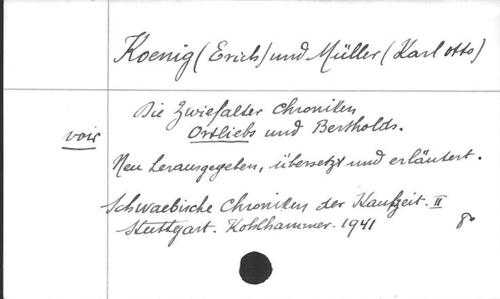 Koenig (Erich) und Müller (Karl otto)
Die Zwiefalter Chroniken
voir Ortliebs und Bertholds.
Neu herausgegeben, übersetzt und erläutert.
Schwaebische Chroniken der Staufzeit. II
Stuttgart. Kohlhammer. 1941 8º